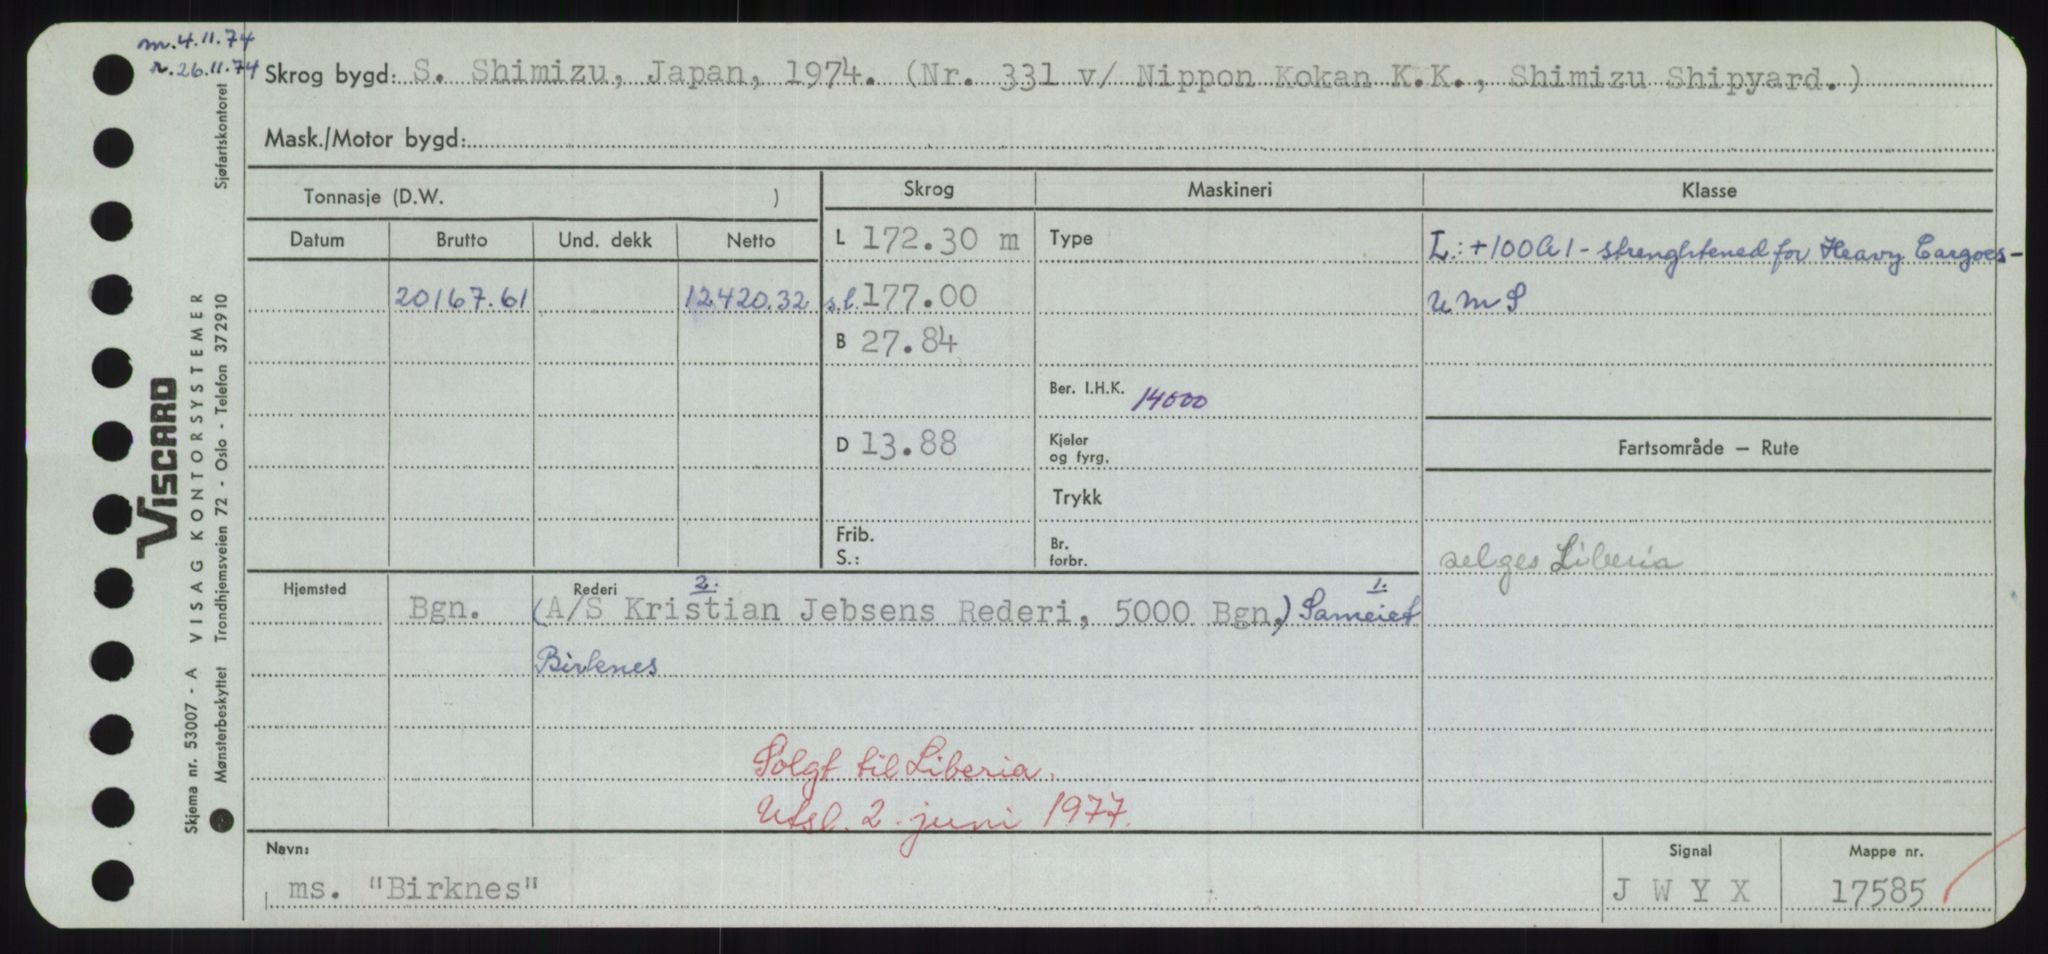 m. 4.11.74
r. 26.11.74
Skrog bygd: S. Shimizu, Japan, 1974. (Nr. 331 v/ Nippon Kokan K.K., Shimizu Shipyard.)
Mask./Motor bygd:
Tonnasje (D.W. )
Skrog
Maskineri
Klasse
Datum
Brutto
Und. dekk
Netto
L 172.30 m
Type
L: +100A1 - strenghtened for Heavy Cargoes -
20167.61
12420.32
s.l. 177.00
UMS
B 27.84
Ber. I.H.K. 14000
D 13.88
Kjeler
og fyrg.
Fartsområde — Rute
Trykk
Frib.
S.:
Br.
forbr.
selges Liberia
Hjemsted
Rederi
2.
1.
Bgn.
(A/S Kristian Jebsens Rederi, 5000 Bgn.) Sameiet
Birknes
Solgt til Liberia.
Utsl. 2. juni 1977.
Navn:
Signal
Mappe nr.
ms. "Birknes"
J W Y X
17585
VISCARD
VISAG KONTORSYSTEMER
Skjema nr. 53007 - A
Mønsterbeskyttet Trondhjemsveien 72 - Oslo - Telefon 372910
Sjøfartskontoret